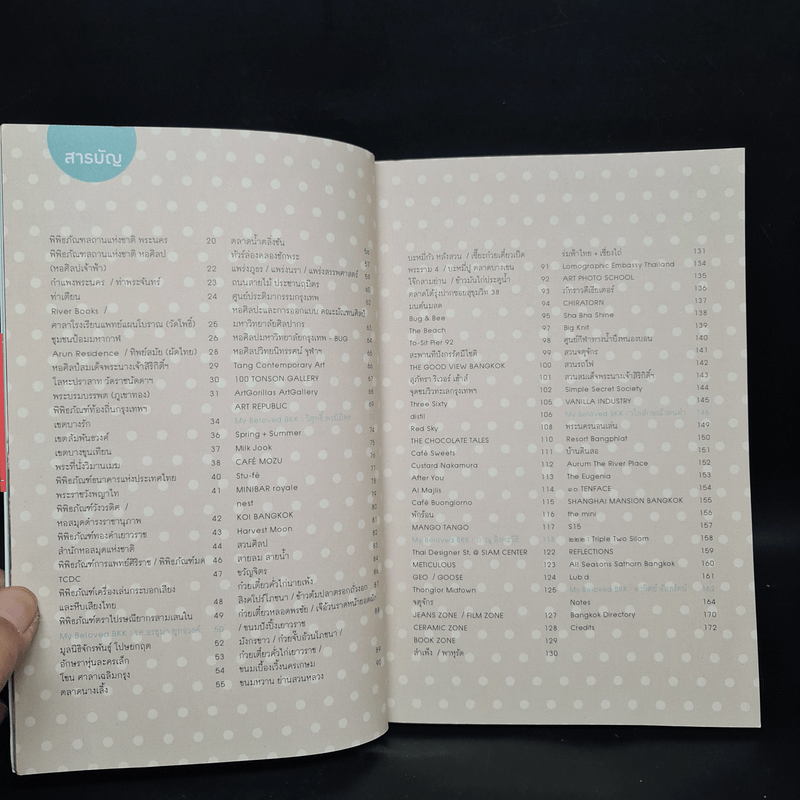 สารบัญ
พิพิธภัณฑสถานแห่งชาติ พระนคร 20
พิพิธภัณฑสถานแห่งชาติ หอศิลป
(หอศิลป์เจ้าฟ้า) 22
กำแพงพระนคร / ท่าพระจันทร์ 23
ท่าเตียน 24
River Books /
ศาลาโรงเรียนแพทย์แผนโบราณ (วัดโพธิ์) 25
ชุมชนป้อมมหากาฬ 26
Arun Residence / ทิพย์สมัย (ผัดไทย) 28
หอศิลป์สมเด็จพระนางเจ้าสิริกิติ์ฯ 29
โลหะปราสาท วัดราชนัดดาฯ 30
พระบรมบรรพต (ภูเขาทอง) 31
พิพิธภัณฑ์ท้องถิ่นกรุงเทพฯ
เขตบางรัก 34
เขตสัมพันธวงศ์ 36
เขตบางขุนเทียน 37
พระที่นั่งวิมานเมฆ 38
พิพิธภัณฑ์ธนาคารแห่งประเทศไทย 40
พระราชวังพญาไท 41
พิพิธภัณฑ์วังวรดิศ /
หอสมุดดำรงราชานุภาพ 42
พิพิธภัณฑ์ทองคำเยาวราช 43
สำนักหอสมุดแห่งชาติ 44
พิพิธภัณฑ์การแพทย์ศิริราช / พิพิธภัณฑ์มด 46
TCDC 47
พิพิธภัณฑ์เครื่องเล่นกระบอกเสียง
และหีบเสียงไทย 48
พิพิธภัณฑ์ตราไปรษณียากรสามเสนใน 49
My Beloved BKK : 50
มูลนิธิจักรพันธุ์ โปษยกฤต 52
อักษราหุ่นละครเล็ก 53
โขน ศาลาเฉลิมกรุง 54
ตลาดนางเลิ้ง 55
ตลาดน้ำตลิ่งชัน 56
ทัวร์ล่องคลองชักพระ 57
แพร่งภูธร / แพร่งนรา / แพร่งสรรพศาสตร์
ถนนตายไม้ ประชานฤมิตร
ศูนย์ประติมากรรมกรุงเทพ
หอศิลปะและการออกแบบ คณะมัณฑนศิลป์
มหาวิทยาลัยศิลปากร
หอศิลปมหาวิทยาลัยกรุงเทพ - BUG
หอศิลปวิทยนิทรรศน์ จุฬาฯ
Tang Contemporary Art
100 TONSON GALLERY
ArtGorillas ArtGallery
ART REPUBLIC 69
My Beloved BKK :
Spring + Summer
Milk Jook
CAFÉ MOZU
Stu-fé
MINIBAR royale
nest
KOI BANGKOK
Harvest Moon
สวนศิลป์
ลายลม ลายน้ำ
ขวัญจิตร
ก๋วยเตี๋ยวคั่วไก่นายเพ้ง
สิงคโปร์โภชนา / ข้าวต้มปลาตรอกถั่วงอก
ก๋วยเตี๋ยวหลอดพรชัย / เจ๊อ้วนราดหน้ายอดผัก
/ ขนมปังปิ้งเยาวราช
มังกรขาว / ก๋วยจั๊บอ้วนโภชนา /
ก๋วยเตี๋ยวคั่วไก่เยาวราช /
ขนมเบื้องเวิ้งนครเกษม
ขนมหวาน ย่านสวนหลวง 90
บะหมี่กัว หลังสวน / เซี๊ยะก๋วยเตี๋ยวเป็ด
พระราม 4 / บะหมี่ปู ตลาดบางเขน 91
โจ๊กสามย่าน / ข้าวมันไก่ประตูน้ำ 92
ตลาดโต้รุ่งปากซอยสุขุมวิท 38 93
มนต์นมสด 94
Bug & Bee 95
The Beach 97
To-Sit Pier 92 98
สะพานที่ปังกรรัศมีโชติ 99
THE GOOD VIEW BANGKOK 100
สุภัทรา ริเวอร์ เฮ้าส์ 101
จุดชมวิวทะเลกรุงเทพฯ 102
Three Sixty 105
distil 106
Red Sky 108
THE CHOCOLATE TALES 110
Café Sweets 111
Custard Nakamura 112
After You 113
Al Majlis 114
Café Buongiorno 115
พักร้อน 116
MANGO TANGO 117
My Beloved BKK : 118
Thai Designer St. @ SIAM CENTER 122
METICULOUS 123
GEO / GOOSE 124
Thonglor Matown 125
จตุจักร 126
JEANS ZONE / FILM ZONE 127
CERAMIC ZONE 128
BOOK ZONE 129
สำเพ็ง / พาหุรัด 130
ร่มฟ้าไทย + เซี่ยงไถ่ 131
Lomographic Embassy Thailand 134
ART PHOTO SCHOOL 135
ภัทราวดีเธียเตอร์ 136
CHIRATORN 137
Sha Bha Shine 138
Big Knit 139
ศูนย์กีฬาทางน้ำบึงหนองบอน 140
สวนจตุจักร 141
สวนรถไฟ 142
สวนสมเด็จพระนางเจ้าสิริกิติ์ฯ 143
Simple Secret Society 144
VANILLA INDUSTRY 145
My Beloved BKK : 146
พระนครนอนเล่น 149
Resort Bangphlat 150
บ้านดินสอ 151
Aurum The River Place 152
The Eugenia 153
๑๐ TENFACE 154
SHANGHAI MANSION BANGKOK 155
the mini 156
S15 157
๒๒๒ : Triple Two Silom 158
REFLECTIONS 159
All Seasons Sathorn Bangkok 160
Lub d 161
My Beloved BKK : 162
Notes 164
Bangkok Directory 170
Credits 172